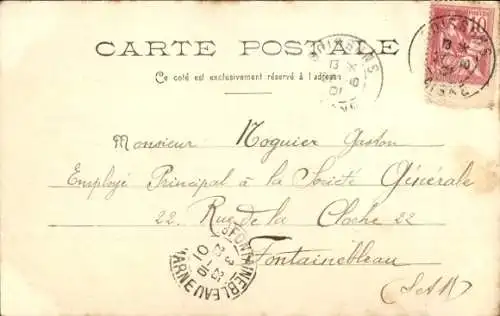 CARTE POSTALE
SOISSONS
AISNE
10
Ce coté est exclusivement réservé à l'adresse
Monsieur Noguier Gaston
Employé Principal à la Société Générale
22. Rue de la Cloche 22
Fontainebleau
(S&M)
FONTAINEBLEAU
MARNE